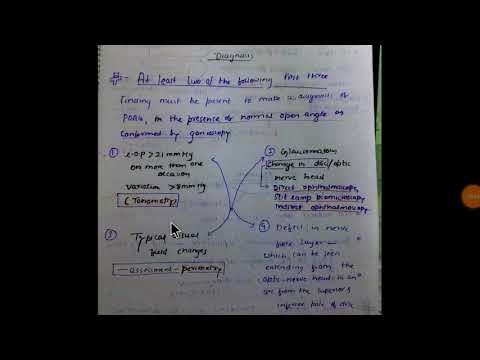 Diagnosis
At least two of the following first three
finding must be present to make a diagnosis of
POAG, in the presence of normal open angle as
confirmed by gonioscopy
① I.O.P > 21 mmHg
on more than one
occasion
variation > 8 mmHg
(Tonometry)
② Glaucomatous
Change in disc/optic
nerve head
Direct ophthalmoscopy
Slit lamp biomicroscopy
Indirect ophthalmoscopy
③ Typical visual
field changes
assessment - perimetry
④ Defect in nerve
fibre layer
which can be seen
extending from the
optic nerve head in an
arc from the superior &
inferior pole of disc